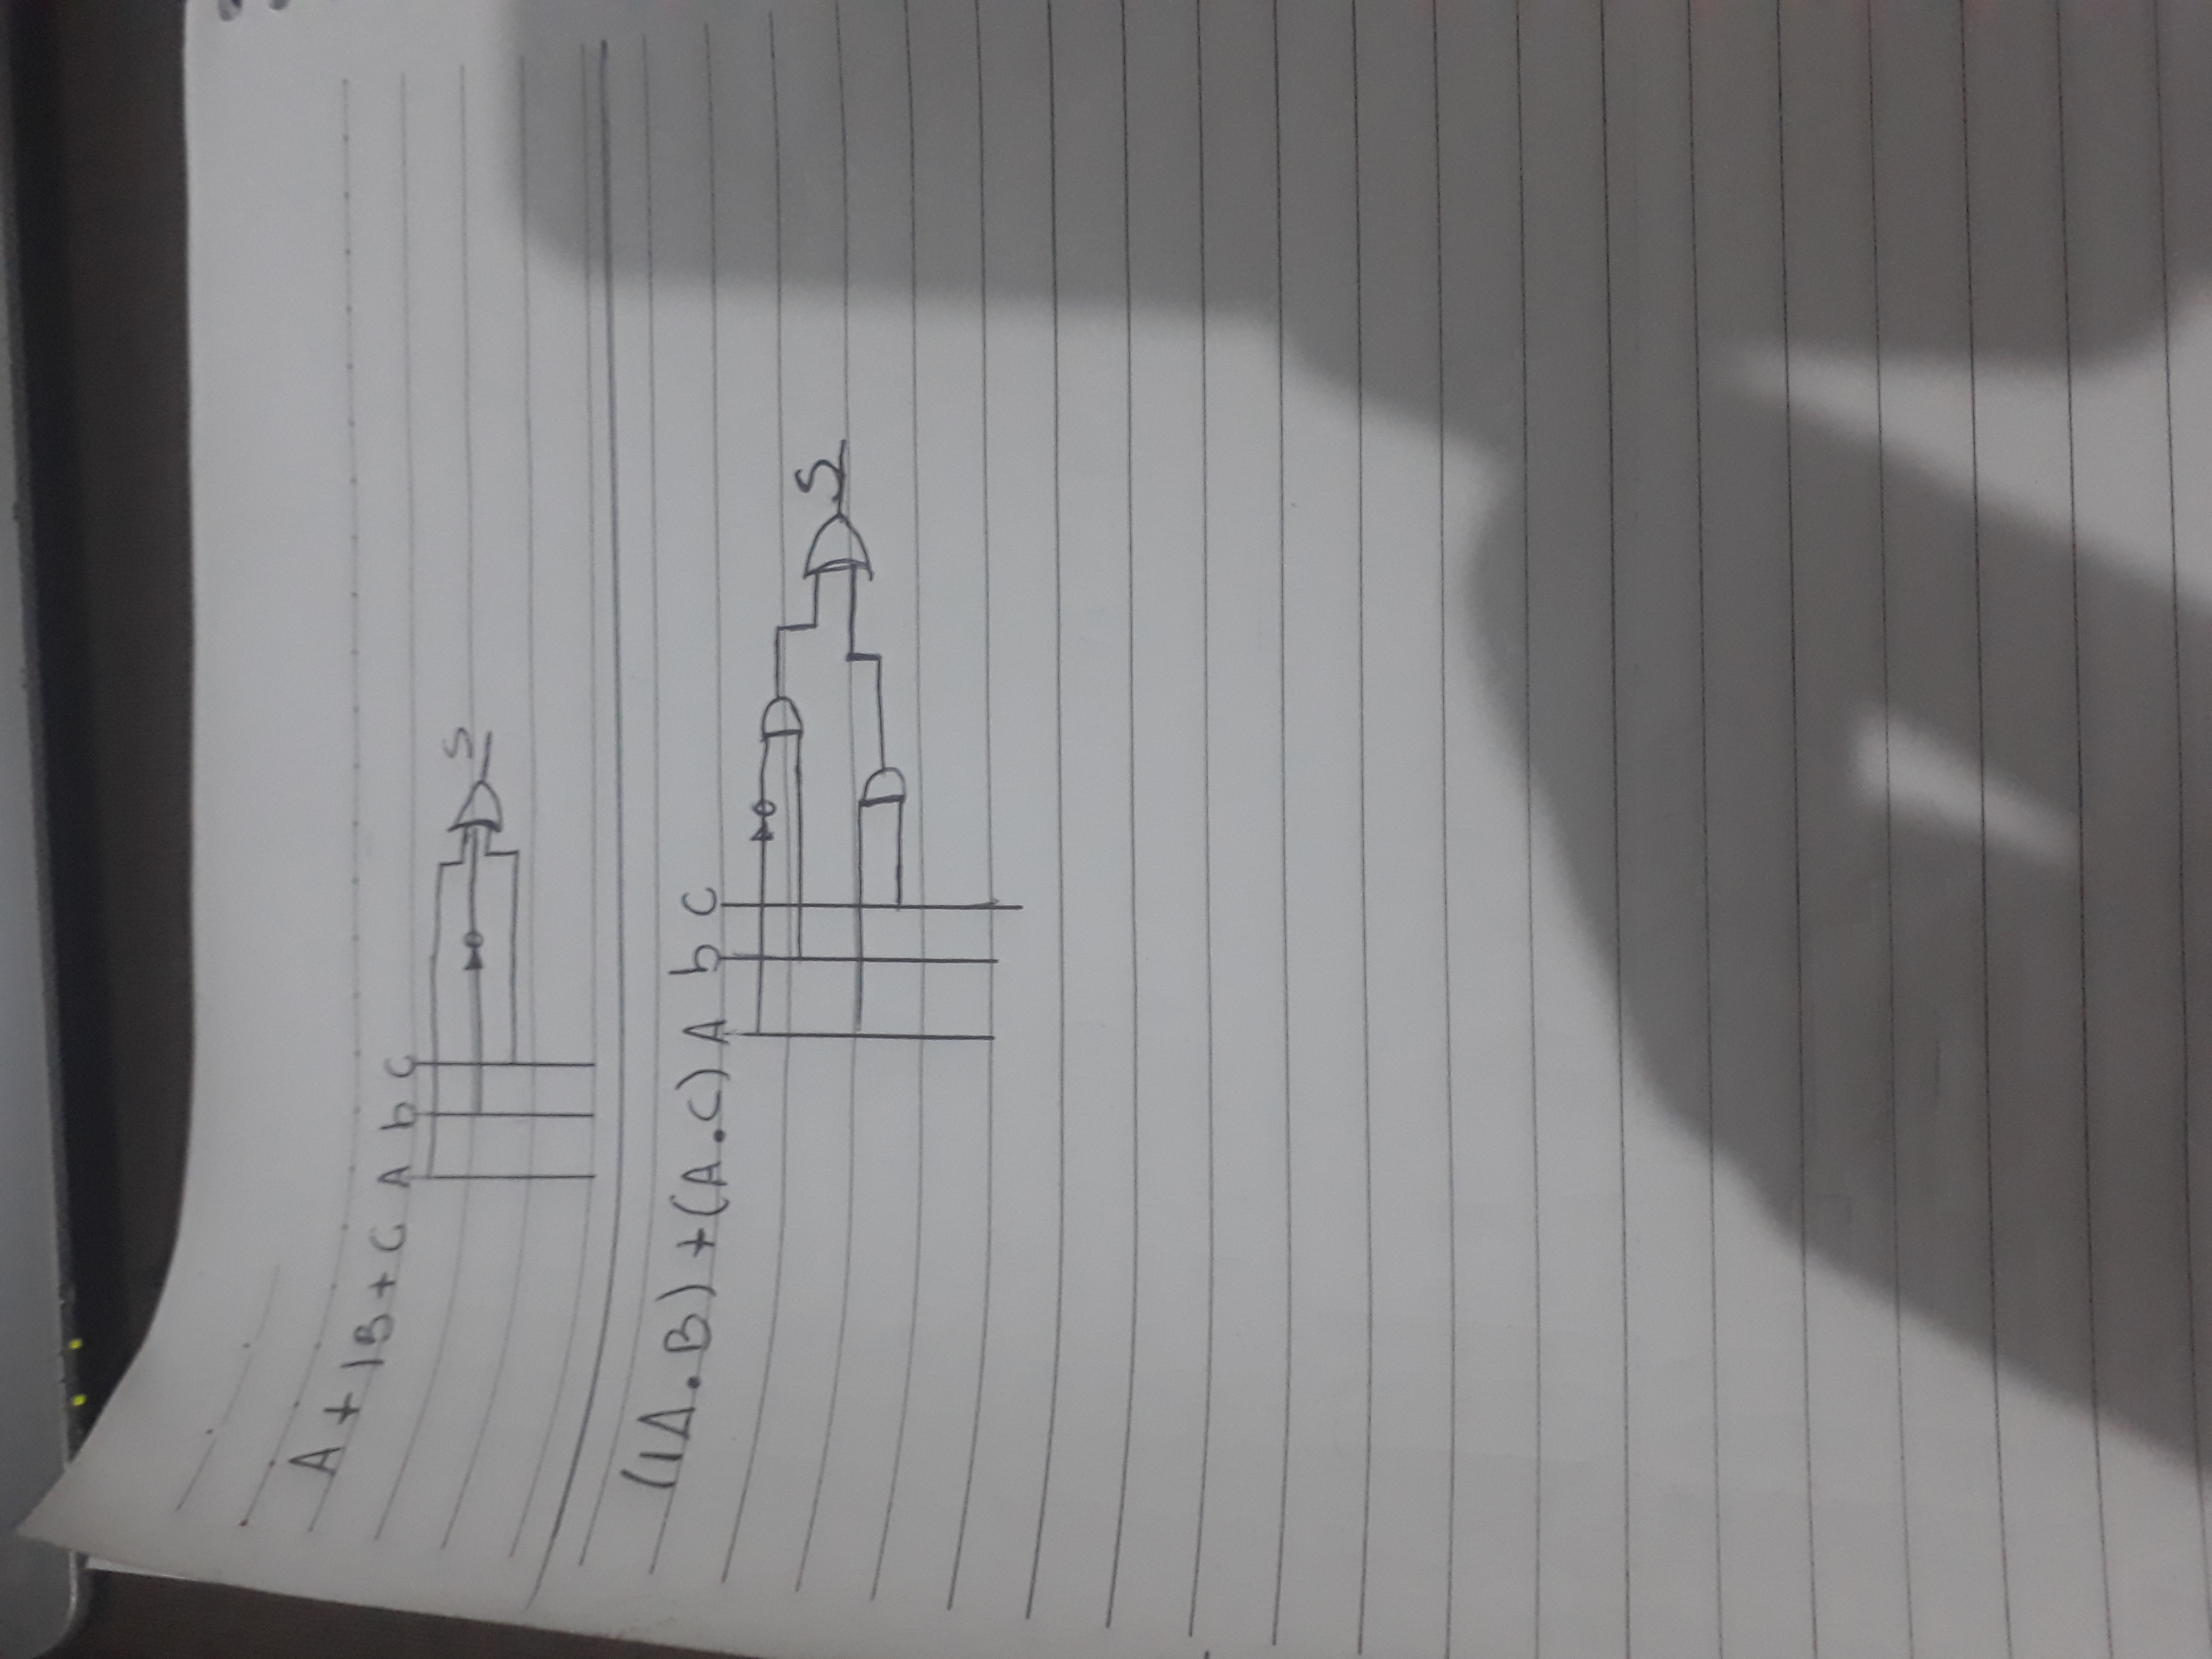 A + 1B + C
A b C
S
(1A . B) + (A . C)
A b C
S